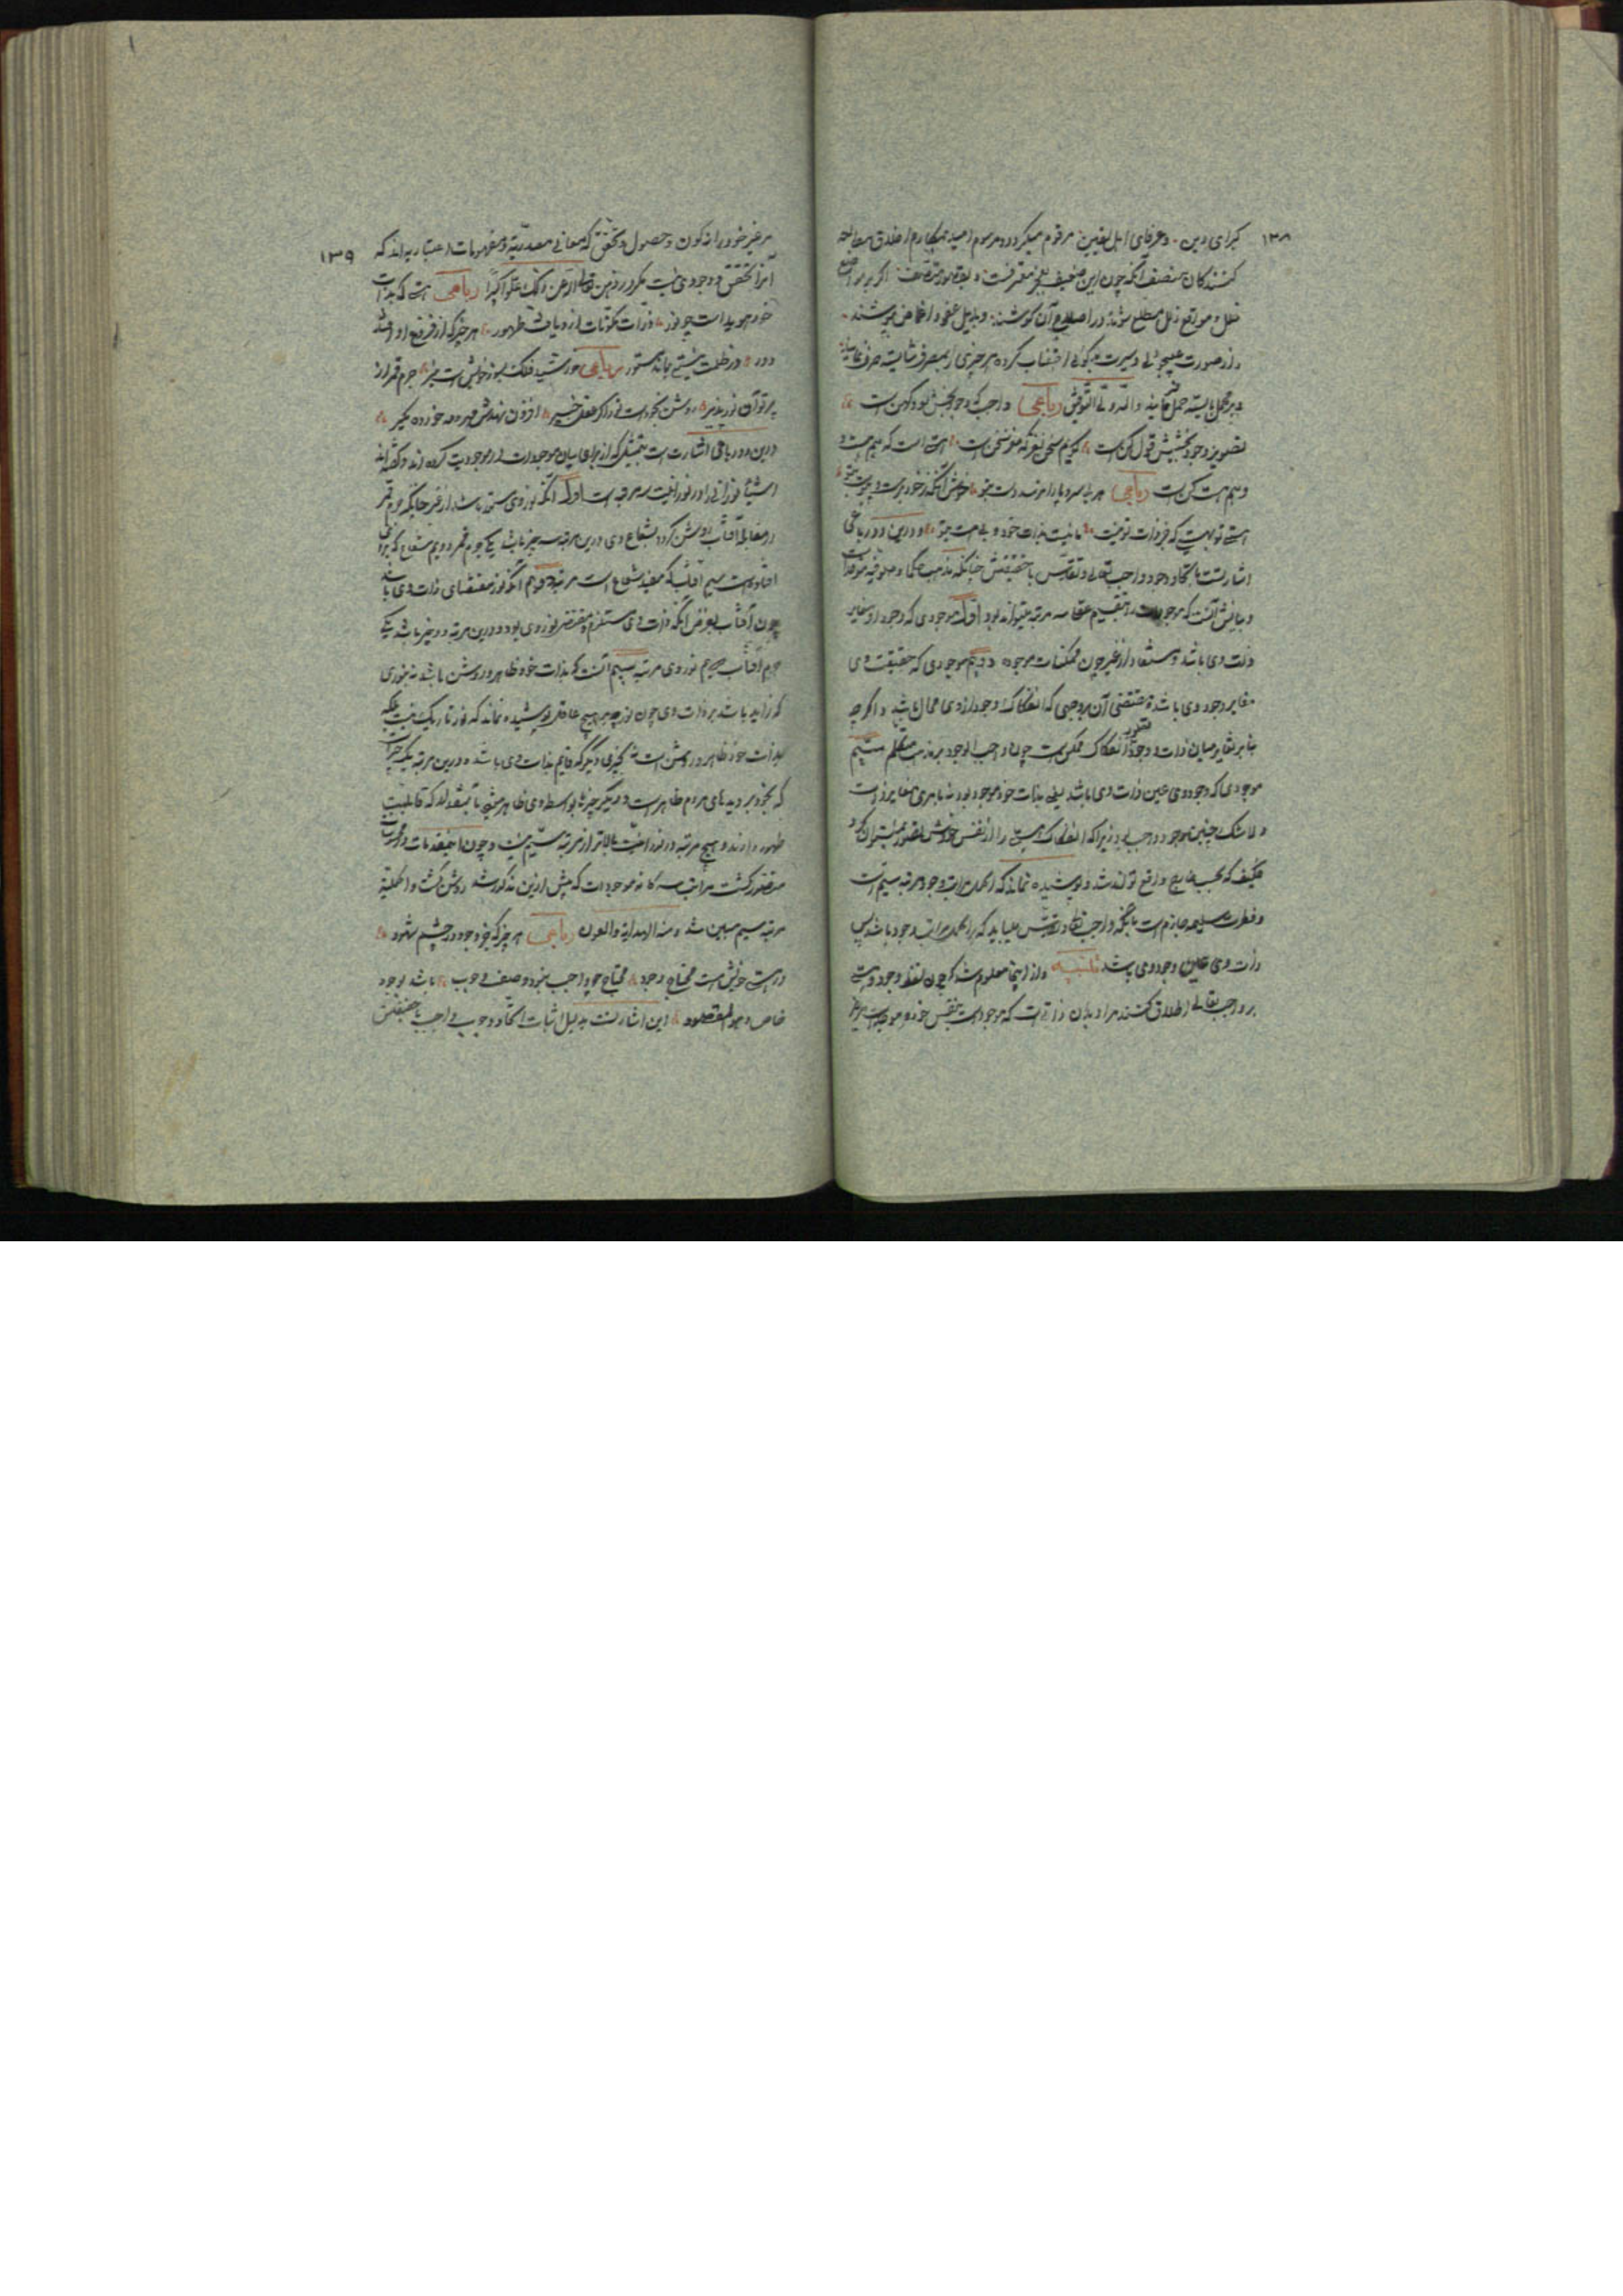 ۱۳۸
کبرای دین و عرفای اهل یقین مرقوم میگردد و مرسوم امید بمکارم اخلاق مطالعه
کنندگان منصف آنکه چون این ضعیف بعجز معترفست و بقصور متصف اگر بر مواضع
خلل و مواقع زلل مطلع شوند در اصلاح آن کوشند و بذیل عفو و اغماض بپوشند
و از صورت عیبجوئی و سیرت بدگوئی اجتناب کرده هر چیزی را بمصرف شایسته صرف نمایند
و بر محمل بایسته حمل فرمایند والله ولی التوفیق رباعی واجب که وجودبخش نو و کهن است
تصویر وجود بخشیش قول کن است گویم سخن نغز که مغز سخن است هستی است که هم هست و
و هم هست کن است رباعی هر بی سر و پا را نرسد دست بتو خوش آنکه ز خود برست و پیوست بتو
هستی تو هستیی که جز ذات تو نیست ما نیست بذات خود ولی هست بتو و درین دو رباعی
اشارتست باتحاد وجود واجب تعالی و تقدس با حقیقتش چنانکه مذهب حکما و صوفیه موحده است
و بیانش آنست که موجودات را بتقسیم عقلی سه مرتبه میتواند بود اول موجودی که وجود او مغایر
ذات وی باشد و مستفاد از غیر چون ممکنات موجوده دویم موجودی که حقیقت وی
مغایر وجود وی باشد و مقتضی آن بر وجهی که انفکاک وجود از وی محال باشد و اگر چه
بنابر تغایر میان ذات و وجود تصور انفکاک ممکن است چون واجب الوجود بر مذهب متکلم سیم
موجودی که وجود وی عین ذات وی باشد یعنی بذات خود موجود بود نه بامری مغایر ذات
و لا شک چنین موجود واجب بود زیرا که انفکاک شیء را از نفس خودش تصور نمیتوان کرد
فکیف که بحسب خارج واقع تواند شد و پوشیده نماند که اکمل مراتب وجود مرتبه سیم است
و فطرت سلیمه جازم است بآنکه واجب تعالی و تقدس میباید که بر اکمل مراتب وجود باشد پس
ذات وی عین وجود وی باشد تنبیه و از اینجا معلوم شد که چون لفظ وجود و هستی
بر واجب تعالی اطلاق کنند مراد بدان ذاتی است که موجود است بنفس خود و موجد است مر غیر
۱۳۹
مر غیر خود را نه کون و حصول و تحقق که معانی مصدریه و مفهومات اعتباریه اند که
آنرا تحقق و وجودی نیست مگر در ذهن تعالی الله عن ذلک علوا کبیرا رباعی هستی که بذات
خود هویداست چو نور ذرات مکونات از و یافت ظهور هر چیز که از فروغ او افتد
دور در ظلمت نیستی بماند مستور رباعی خورشید فلک بنور خویش است منیر جرم قمر از
پرتو آن نورپذیر روشن بخود است نور اگر عقل خبیر افزون نهدش ز مهر و مه خرده مگیر
درین دو رباعی اشارت است بتمثیلی که از برای بیان موجودات در موجودیت کرده اند و گفته اند
اشیاء نورانی را در نورانیت سه مرتبه است اول آنکه نور وی مستفاد باشد از غیر چنانکه جرم قمر
در مقابله آفتاب روشن گردد بشعاع وی و درین مرتبه سه چیز باشد یکی جرم قمر دویم شعاع که بر وی
افتاده است سیم آفتاب که مفید شعاع است مرتبه دویم آنکه نور مقتضای ذات وی باشد
چون آفتاب بفرض آنکه ذات وی مستلزم و مقتضی نور وی بود و درین مرتبه دو چیز باشد یکی
جرم آفتاب دویم نور وی مرتبه سیم آنست که بذات خود ظاهر و روشن باشد نه بنوری
که زاید باشد بر ذات وی چون نور چه بر هیچ عاقل پوشیده نماند که نور تاریک نیست بلکه
بذات خود ظاهر و روشن است نه بچیزی دیگر که قایم بذات وی باشد و درین مرتبه یک چیز است
که بخود بر دیده های مردم ظاهر است و دیگر چیزها بواسطه وی ظاهر میشوند بآن مقدار که قابلیت
ظهور دارند و هیچ مرتبه در نورانیت بالاتر از مرتبه سیم نیست و چون این مقدمات در محسوسات
متصور گشت مراتب سه گانه موجودات که پیش ازین مذکور شد روشن گشت و اکملیت
مرتبه سیم مبین شد و منه الهدایة والعون رباعی هر چیز که جز وجود در چشم شهود
در هستی خویش است محتاج وجود محتاج چو واجب نبود وصف وجوب باشد بوجود
خاص و هو المقصود این اشارتست بدلیل اثبات اتحاد وجود واجب با حقیقتش